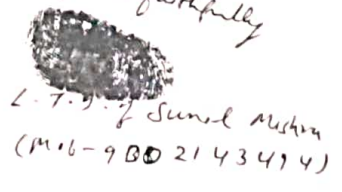 faithfully
L.T.I. of Sunil Mishra
(Mob-98002143494)